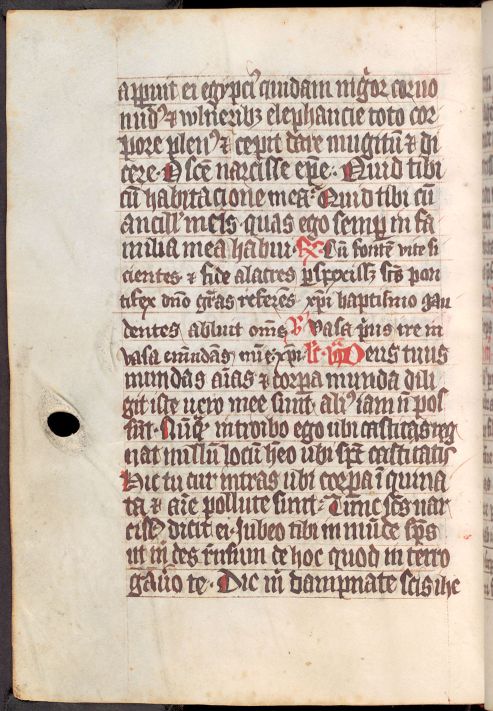 apparuit ei egypci9 quidam nigror coruo
nud9 ⁊ wlneribꝫ elephancie toto cor
pore plen9 ⁊ cepit dare mugitū ⁊ di
cere. O scē narcisse epē. Quid tibi
cū habitacione mea. Quid tibi cū
ancill meis. quas ego semꝑ in fa
milia mea habui. R̸ Cū fontē vite si
cientes ⁊ fide alacres ꝑspexiss scs pon
tifex dño gras referēs xp̄i baptismo gau
dentes abluit om̄s V̸ Vasa pius ire in
vasa emūdans
mundas aīas ⁊ corpa munda dili
git iste uero mee sunt ali9 iam nō pos
sūt. Nūqͥ introibo ego ubi castitas reg
nat nullū locū hēo ubi spc castitatis
Hic tu cur intras ubi corpa iquina
ta ⁊ aīe pollute sunt. Tunc scs nar
cis9 dicit ei. Jubeo tibi in mūde sps
ut in des rn̄sum de hoc quod in terro
gauo te. Dic in dampnate scis ihc